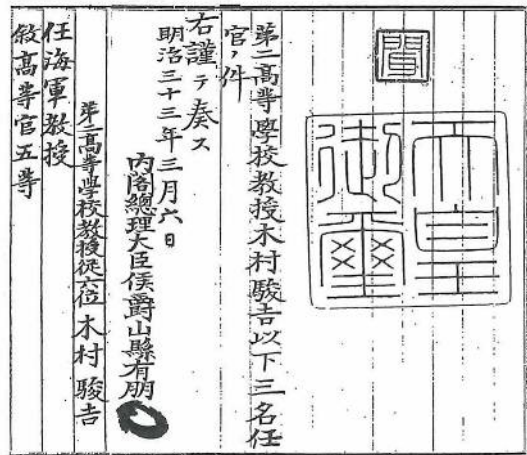 聞
天皇御璽
第二高等學校教授木村駿吉以下三名任
官ノ件
右謹テ奏ス
明治三十三年三月六日
內閣總理大臣侯爵山縣有朋
第二高等學校教授從六位 木村駿吉
任海軍教授
敍高等官五等